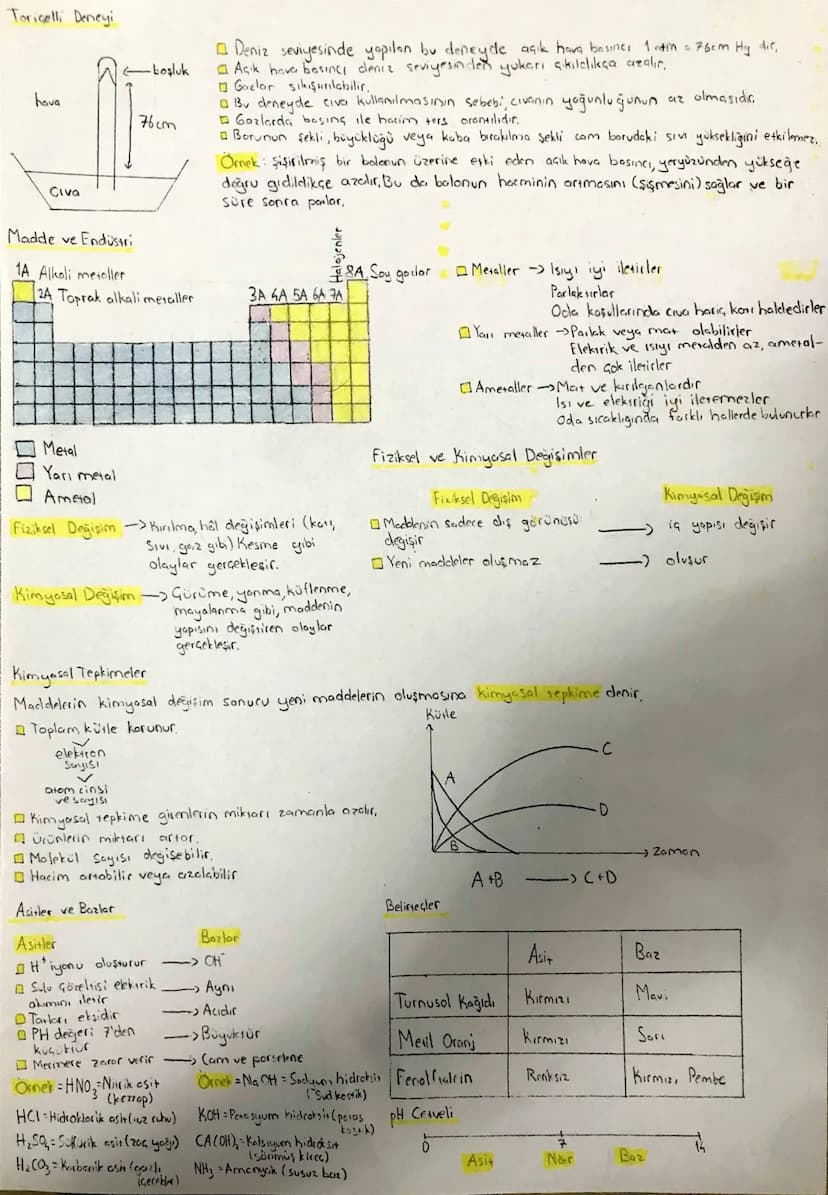 Toriçelli Deneyi
hava
boşluk
76cm
Cıva
Deniz seviyesinde yapılan bu deneyde açık hava basıncı 1 atm = 76cm Hg dir.
Açık hava basıncı deniz seviyesinden yukarı çıkıldıkça azalır.
Gazlar sıkıştırılabilir.
Bu deneyde cıva kullanılmasının sebebi, cıvanın yoğunluğunun az olmasıdır.
Gazlarda basınç ile hacim ters orantılıdır.
Borunun şekli, büyüklüğü veya kaba bırakılma şekli cam borudaki sıvı yüksekliğini etkilemez.
Örnek: Şişirilmiş bir balonun üzerine etki eden açık hava basıncı, yeryüzünden yükseğe
doğru gidildikçe azalır. Bu da balonun hacminin artmasını (şişmesini) sağlar ve bir
süre sonra patlar.
Madde ve Endüstri
1A Alkali metaller
2A Toprak alkali metaller
3A 4A 5A 6A 7A
Halojenler
8A Soy gazlar
Metal
Yarı metal
Ametal
Metaller -> Isıyı iyi iletirler
Parlaktırlar
Oda koşullarında cıva hariç, katı haldedirler
Yarı metaller -> Parlak veya mat olabilirler
Elektrik ve ısıyı metalden az, ametal-
den çok iletirler
Ametaller -> Mat ve kırılganlardır
Isı ve elektriği iyi iletemezler
Oda sıcaklığında farklı hallerde bulunurlar
Fiziksel ve Kimyasal Değişimler
Fiziksel Değişim
Kimyasal Değişim
Maddenin sadece dış görünüşü -> iç yapısı değişir
değişir
Yeni maddeler oluşmaz -> oluşur
Fiziksel Değişim -> Kırılma, hâl değişimleri (katı,
sıvı, gaz gibi) Kesme gibi
olaylar gerçekleşir.
Kimyasal Değişim -> Çürüme, yanma, küflenme,
mayalanma gibi, maddenin
yapısını değiştiren olaylar
gerçekleşir.
Kimyasal Tepkimeler
Maddelerin kimyasal değişim sonucu yeni maddelerin oluşmasına kimyasal tepkime denir.
Toplam kütle korunur.
elektron
sayısı
atom cinsi
ve sayısı
Kimyasal tepkime girenlerin miktarı zamanla azalır,
Ürünlerin miktarı artar.
Molekül sayısı değişebilir.
Hacim artabilir veya azalabilir
Kütle
A
B
C
D
Zaman
A+B -> C+D
Asitler ve Bazlar
Asitler
Bazlar
H+ iyonu oluşturur -> OH-
Sulu çözeltisi elektrik -> Aynı
akımını iletir
Tatları ekşidir -> Acıdır
PH değeri 7'den -> Büyüktür
küçüktür
Mermere zarar verir -> Cam ve porselene
Örnek = HNO3 = Nitrik asit
(kezzap)
HCl = Hidroklorik asit (tuz ruhu)
H2SO4 = Sülfürik asit (zaç yağı)
H2CO3 = Karbonik asit (gazlı
içecekler)
Örnek = NaOH = Sodyum hidroksit
(Sud kostik)
KOH = Potasyum hidroksit (potas
kostik)
CA(OH)2 = Kalsiyum hidroksit
(sönmüş kireç)
NH3 = Amonyak (susuz baz)
Belirteçler
Asit
Baz
Turnusol Kağıdı
Kırmızı
Mavi
Metil Oranj
Kırmızı
Sarı
Fenolftalein
Renksiz
Kırmızı, Pembe
pH Cetveli
0
7
14
Asit
Nötr
Baz